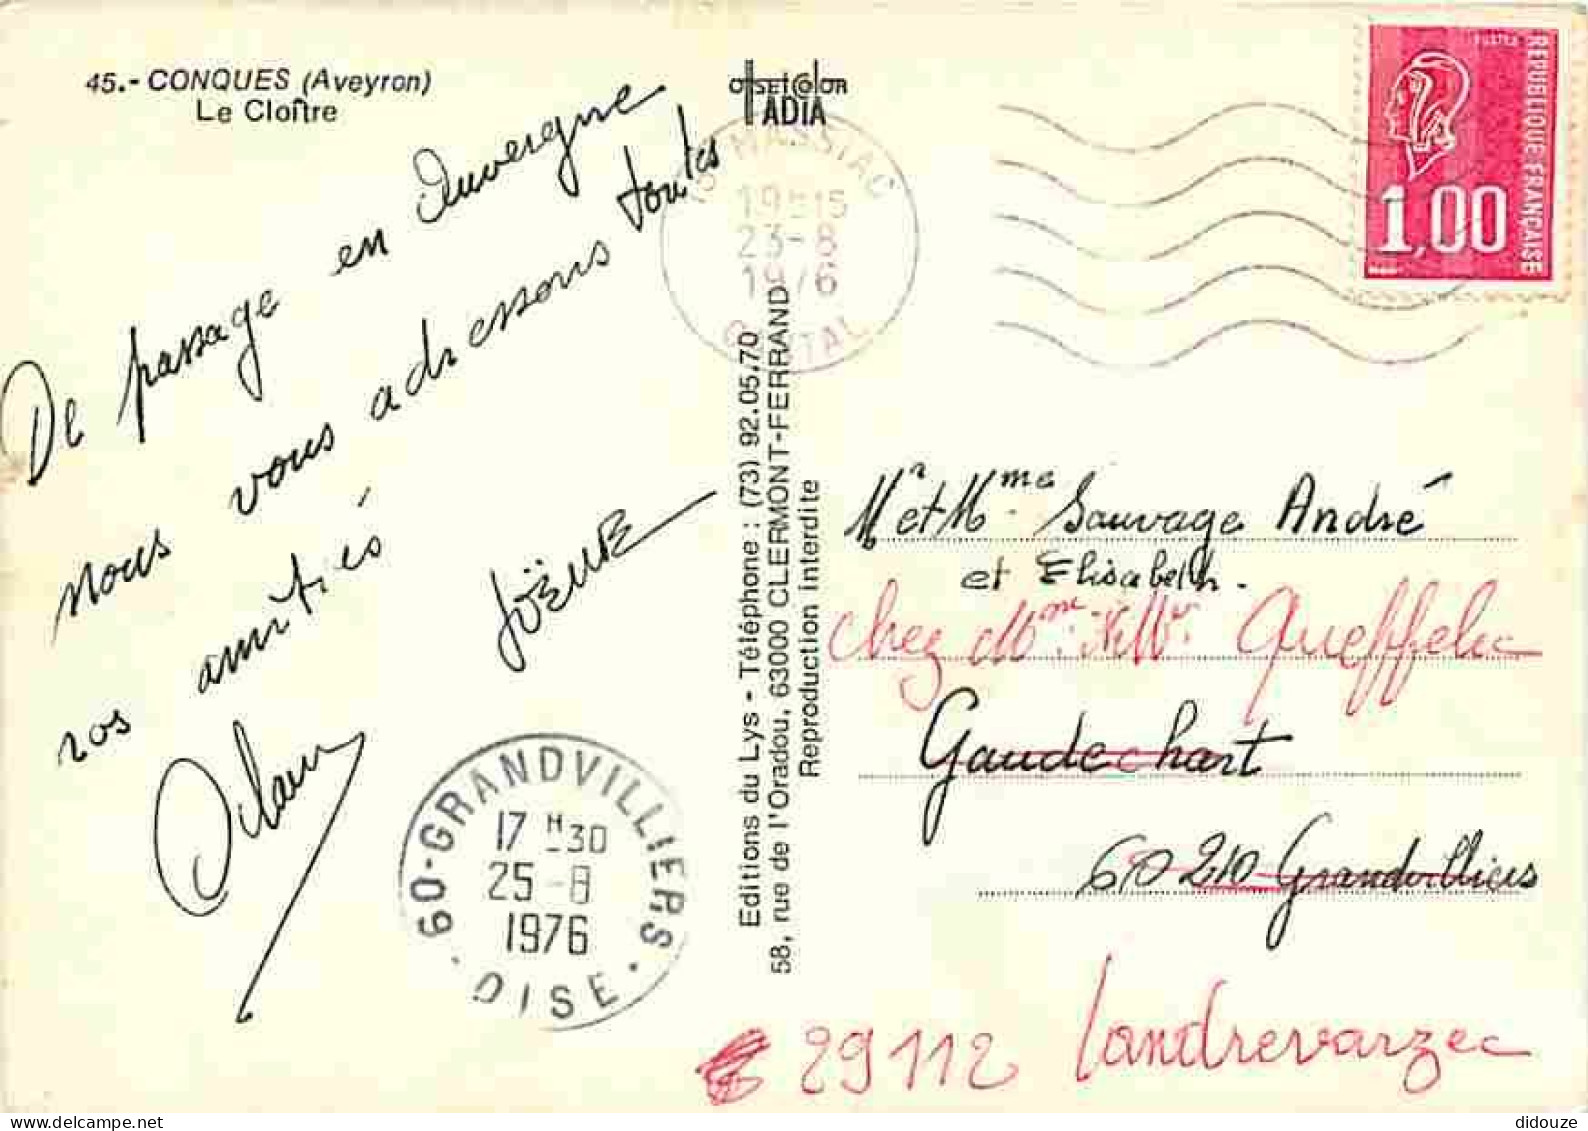 45.- CONQUES (Aveyron)
Le Cloître
OFFSETCOLOR
TADIA
De passage en Auvergne
nous vous adressons toutes
nos amitiés
Joëlle
Alain
15 MASSIAC
19H15
23-8
1976
CANTAL
POSTES
REPUBLIQUE FRANÇAISE
1,00
Editions du Lys - Téléphone : (73) 92.05.70
58, rue de l'Oradou, 63000 CLERMONT-FERRAND
Reproduction interdite
Mr et Mme Sauvage André
et Elisabeth.
chez Mme et Mr Queffelec
Gaudechart
60210 Grandvilliers
29112 Landrevarzec
60-GRANDVILLIERS
17 H30
25-8
1976
OISE
didouze